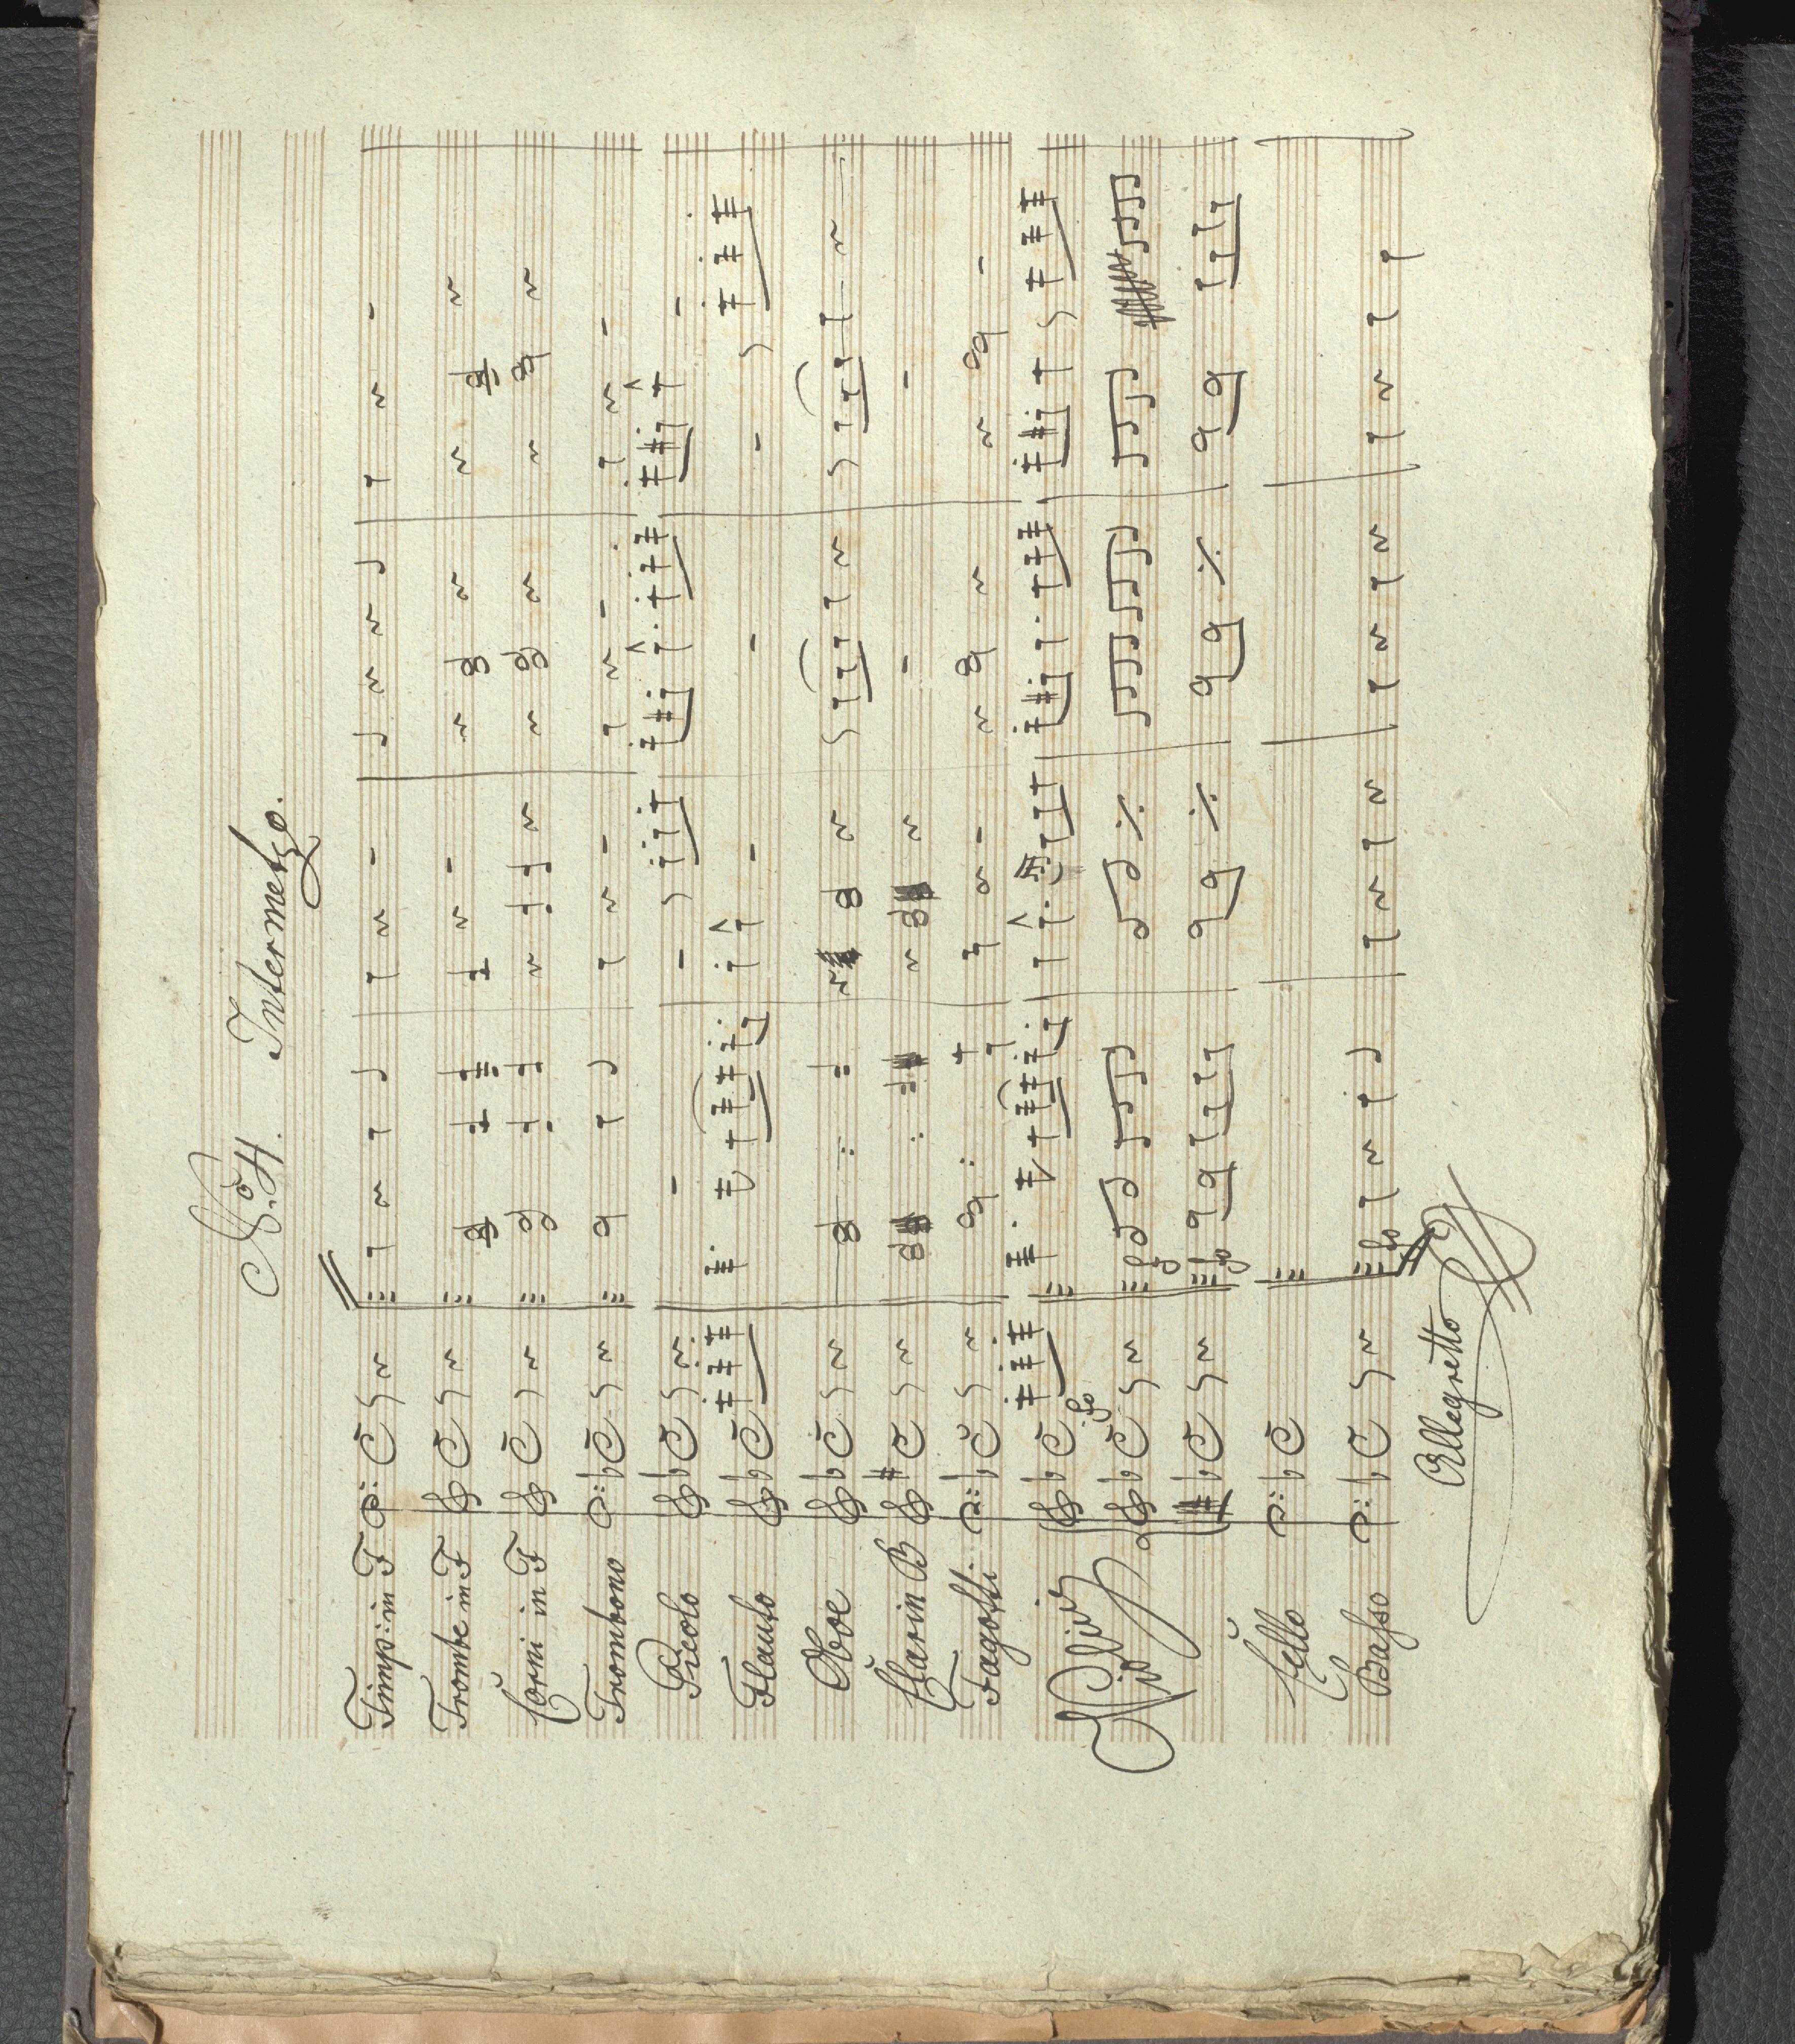 No. 4. Intermetzo.
Timp: in F
Trombe in F
Corni in F
Trombono
Picolo
Flauto
Oboe
Clarin B
Fagotti
Violini
Cello
Basso
Allegretto